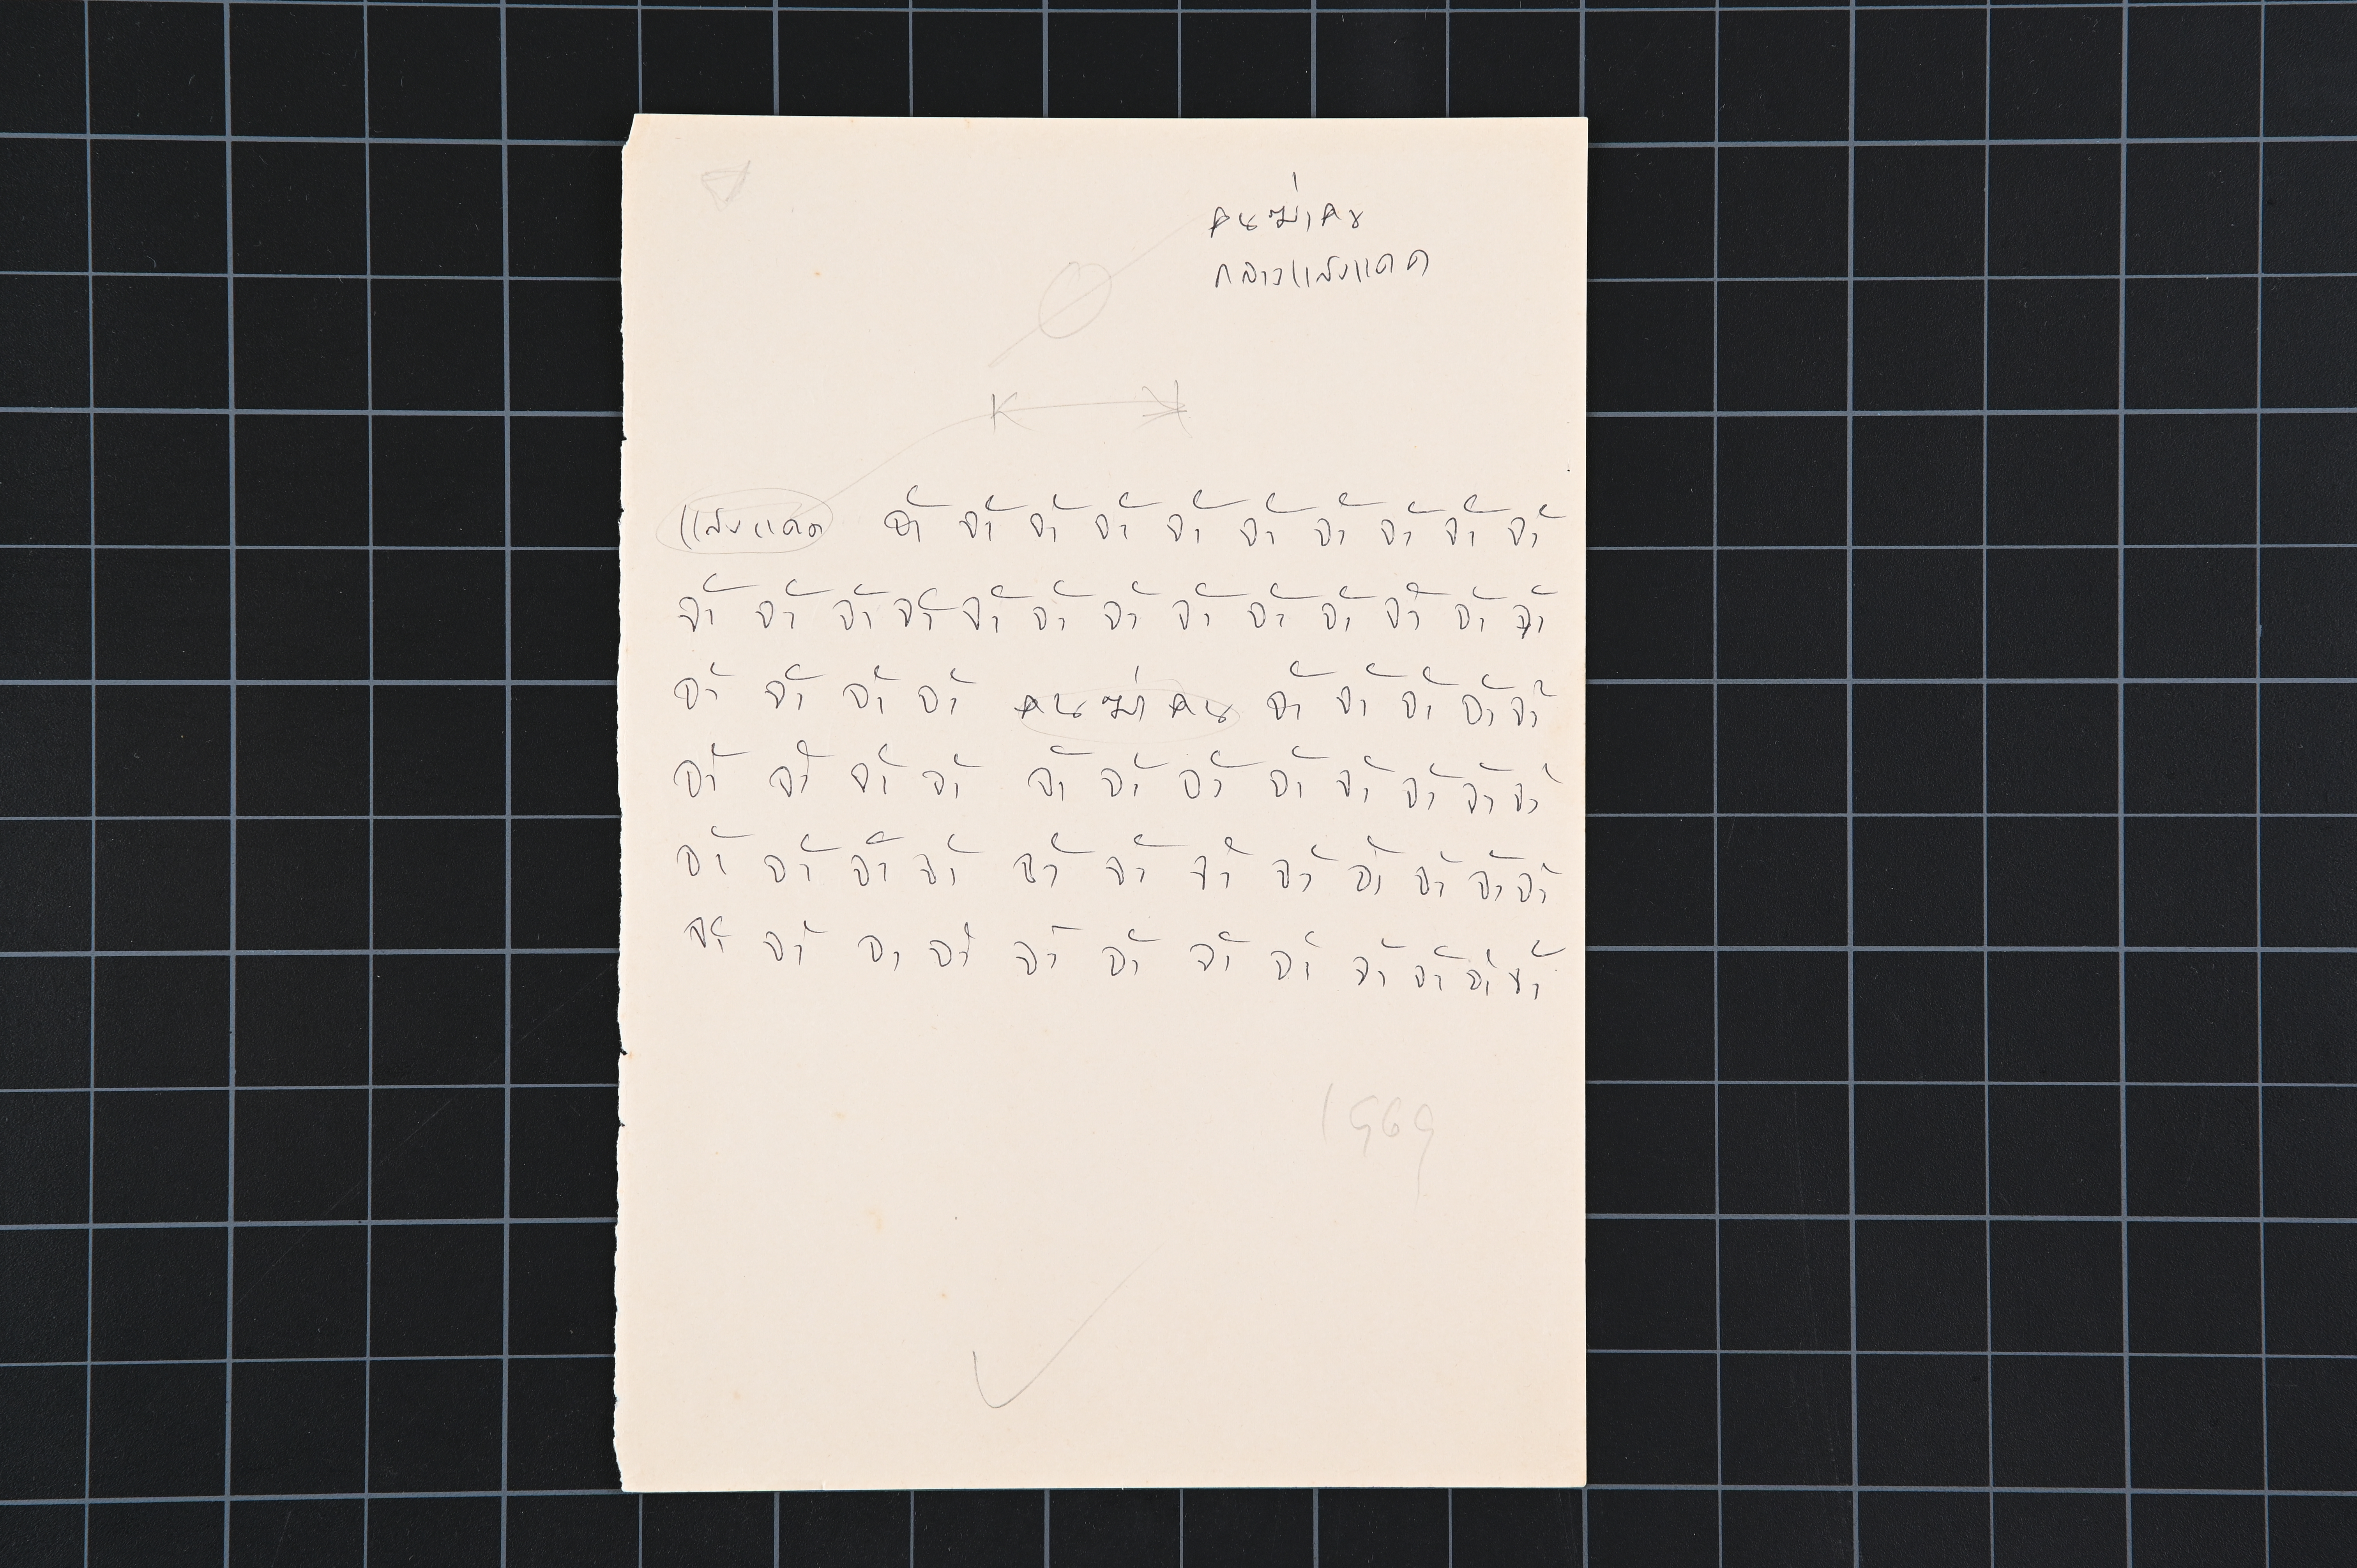 คนฆ่าคน
กลางแสงแดด
แสงแดด จ้า จ้า จ้า จ้า จ้า จ้า จ้า จ้า จ้า จ้า
จ้า จ้า จ้า จ้า จ้า จ้า จ้า จ้า จ้า จ้า จ้า จ้า จ้า
จ้า จ้า จ้า จ้า คนฆ่าคน จ้า จ้า จ้า จ้า จ้า
จ้า จ้า จ้า จ้า จ้า จ้า จ้า จ้า จ้า จ้า จ้า จ้า
จ้า จ้า จ้า จ้า จ้า จ้า จ้า จ้า จ้า จ้า จ้า จ้า
จ้า จ้า จา จ้า จ้า จ้า จ้า จ้า จ้า จ้า จ้า จ้า
1969